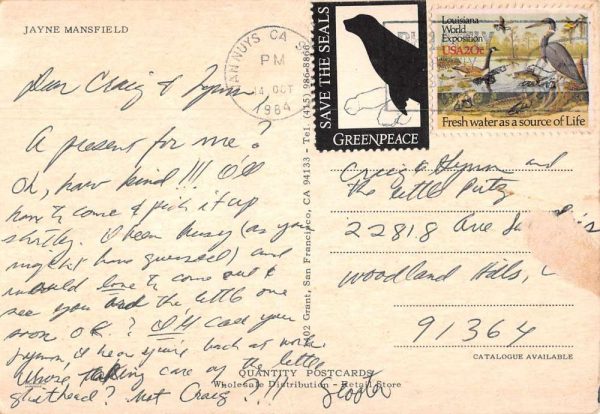 JAYNE MANSFIELD
VAN NUYS CA
PM
14 OCT
1984
SAVE THE SEALS
GREENPEACE
Louisiana
World
Exposition
USA 20c
Fresh water as a source of Life
Dear Craig & Lynn,
A present for me?
Oh, how kind!!! I'll
have to come & pick it up
shortly. I been busy (as you
might have guessed) and
would love to come out &
see you and the little one
soon OK? I'll call you
Lynn, I hear you're back at work.
Whose taking care of the little
? Not Craig!!!
Craig & Lynn and
the little Putz
22818 Ave
Woodland Hills,
91364
CATALOGUE AVAILABLE
QUANTITY POSTCARDS
Wholesale Distribution - Retail Store
02 Grant, San Francisco, CA 94133 - Tel. (415) 986-8866